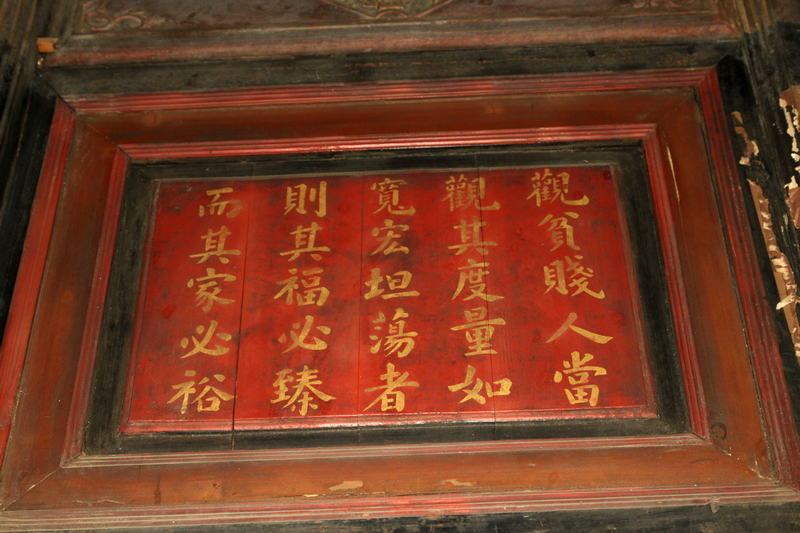 觀貧賤人當
觀其度量如
寬宏坦蕩者
則其福必臻
而其家必裕